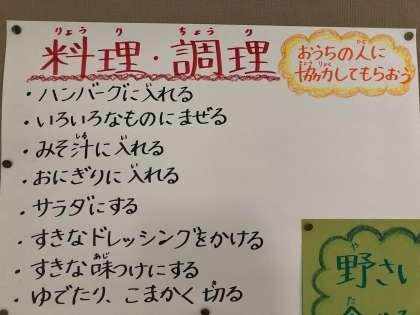 料理・調理
りょうり ちょうり
おうちの人に
協力してもらおう
・ハンバーグに入れる
・いろいろなものにまぜる
・みそ汁に入れる
・おにぎりに入れる
・サラダにする
・すきなドレッシングをかける
・すきな味つけにする
・ゆでたり、こまかく切る
野さい